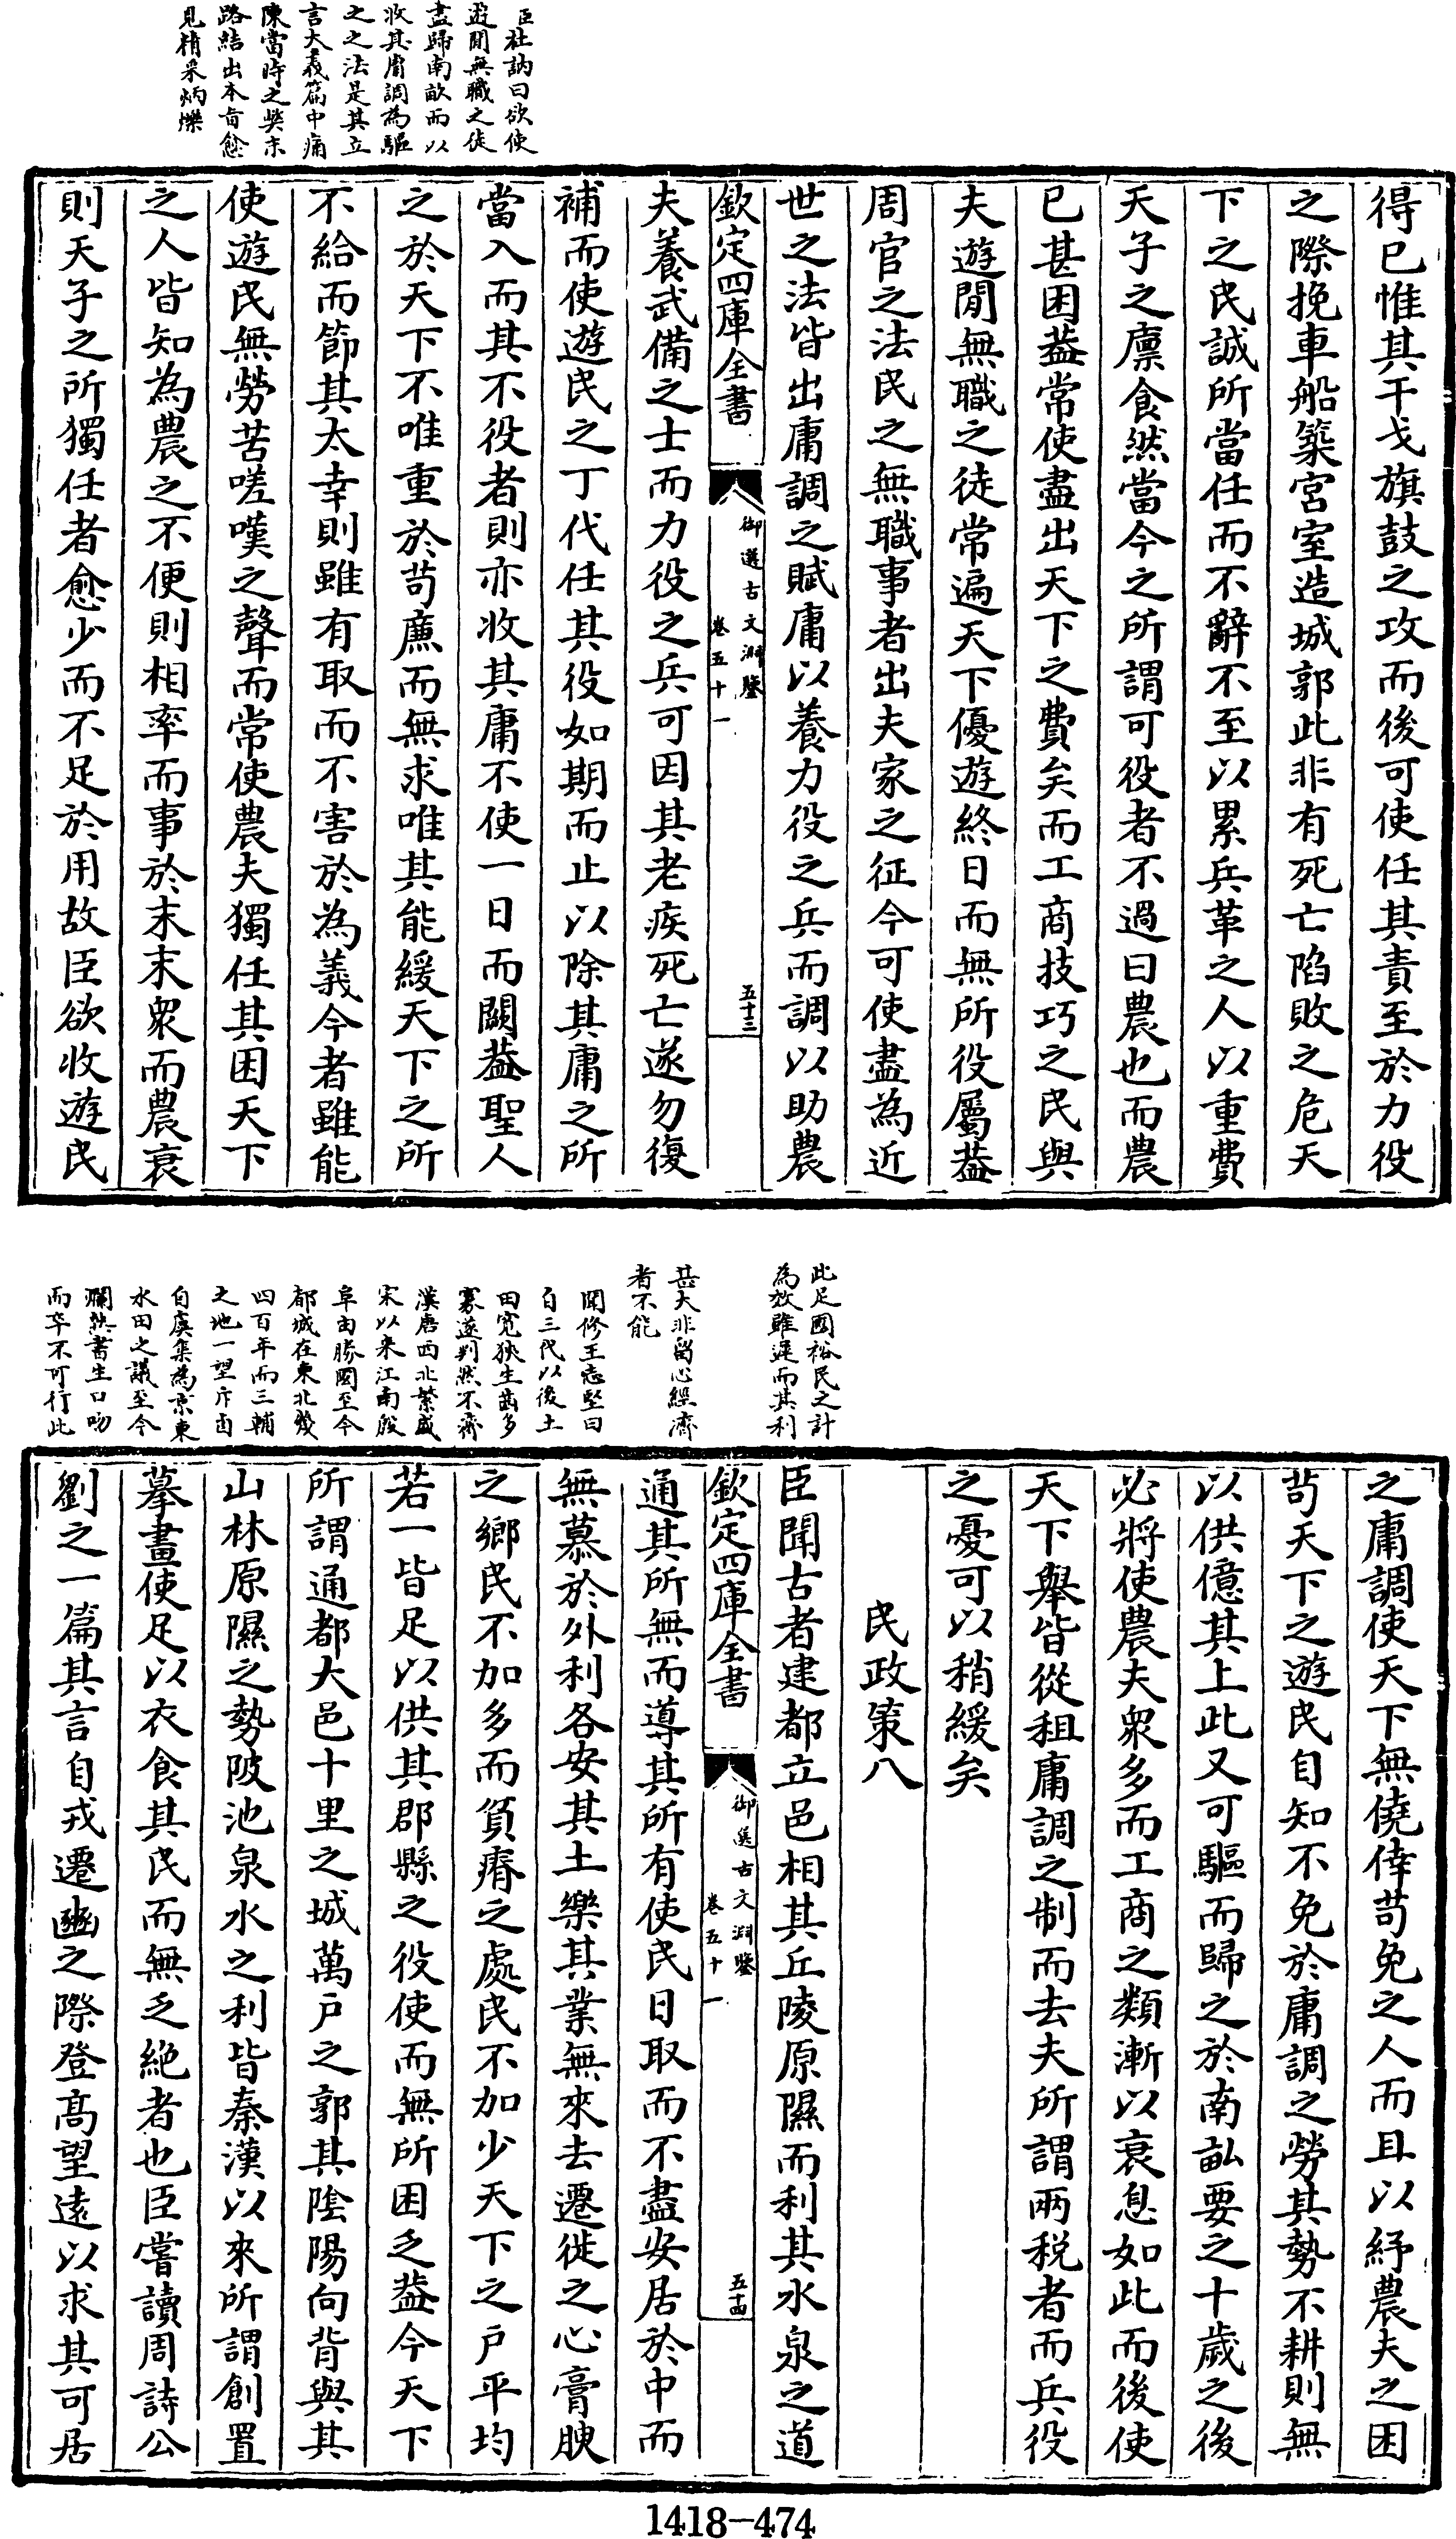 臣杜訥曰欲使
遊閒無職之徒
盡歸南畝而以
收其庸調為驅
之之法是其立
言大義篇中痛
陳當時之獘末
路結出本旨愈
見精采炳爍
得已惟其干戈旗鼓之攻而後可使任其責至於力役
之際挽車船築宮室造城郭此非有死亡陷敗之危天
下之民誠所當任而不辭不至以累兵革之人以重費
天子之廪食然當今之所謂可役者不過曰農也而農
已甚困葢常使盡出天下之費矣而工商技巧之民與
夫遊閒無職之徒常遍天下優遊終日而無所役屬葢
周官之法民之無職事者出夫家之征今可使盡為近
世之法皆出庸調之賦庸以養力役之兵而調以助農
欽定四庫全書
御選古文淵鑒
卷五十一
五十三
夫養武備之士而力役之兵可因其老疾死亡遂勿復
補而使遊民之丁代任其役如期而止以除其庸之所
當入而其不役者則亦收其庸不使一日而闕葢聖人
之於天下不唯重於苟廉而無求唯其能緩天下之所
不給而節其太幸則雖有取而不害於為義今者雖能
使遊民無勞苦嗟嘆之聲而常使農夫獨任其困天下
之人皆知為農之不便則相率而事於末末衆而農衰
則天子之所獨任者愈少而不足於用故臣欲收遊民
此足國裕民之計
為效雖遲而其利
甚大非留心經濟
者不能
聞修王志堅曰
自三代以後土
田寛狹生齒多
寡遂判然不齊
漢唐西北繁盛
宋以來江南殷
阜由勝國至今
都城在東北幾
四百年而三輔
之地一望斥鹵
自虞集為京東
水田之議至今
爛熟書生口吻
而卒不可行此
之庸調使天下無僥倖苟免之人而且以紓農夫之困
苟天下之遊民自知不免於庸調之勞其勢不耕則無
以供億其上此又可驅而歸之於南畝要之十歲之後
必將使農夫衆多而工商之類漸以衰息如此而後使
天下舉皆從租庸調之制而去夫所謂兩税者而兵役
之憂可以稍緩矣
民政策八
臣聞古者建都立邑相其丘陵原隰而利其水泉之道
欽定四庫全書
御選古文淵鑒
卷五十一
五十四
通其所無而導其所有使民日取而不盡安居於中而
無慕於外利各安其土樂其業無來去遷徙之心膏腴
之鄉民不加多而貧瘠之處民不加少天下之戸平均
若一皆足以供其郡縣之役使而無所困乏葢今天下
所謂通都大邑十里之城萬户之郭其陰陽向背與其
山林原隰之勢陂池泉水之利皆秦漢以來所謂創置
摹畫使足以衣食其民而無乏絶者也臣嘗讀周詩公
劉之一篇其言自戎遷豳之際登髙望逺以求其可居
1418-474